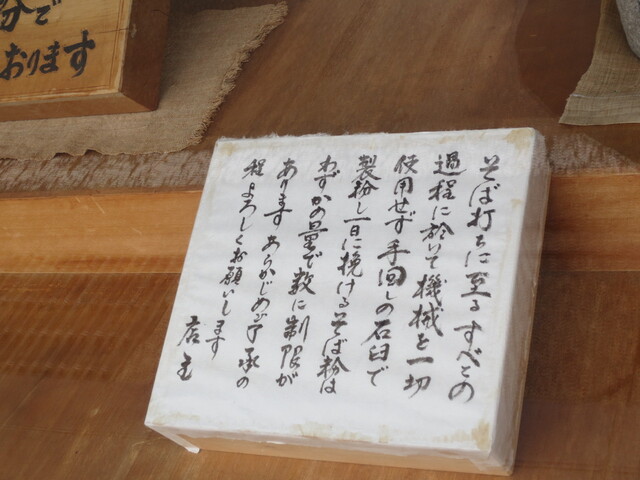 そば打ちに至るすべての
過程に於いて機械を一切
使用せず手回しの石臼で
製粉し一日に挽けるそば粉は
わずかの量で数に制限が
あります あらかじめご了承の
程よろしくお願いします
店主
粉で
おります